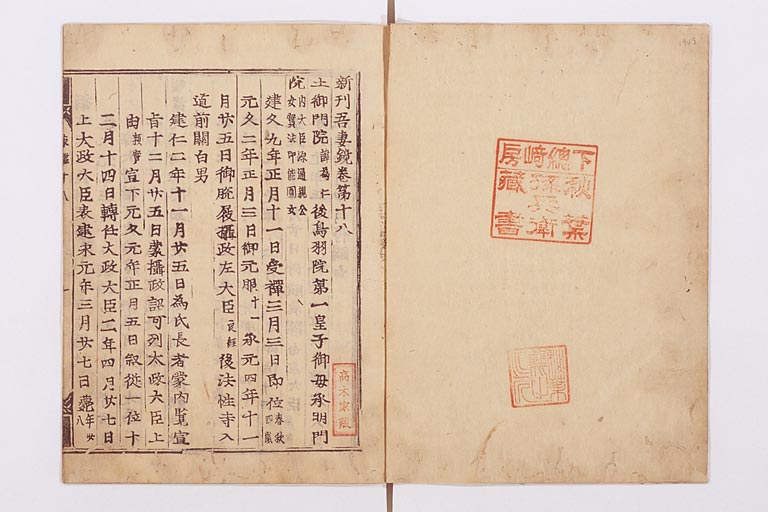 下總崎房
秋葉孫兵衛藏書
新刊吾妻鏡卷第十八
土御門院諱為仁後鳥羽院第一皇子御母承明門
院内大臣源通親公女實法印能圓女
建久九年正月十一日受禪三月三日即位春秋四歳
元久二年正月三日御元服十一承元四年十一
月廿五日御脱屣攝政左大臣良經後法性寺入
道前關白男
建仁二年十一月廿五日為氏長者蒙内覧宣
旨十二月廿五日蒙攝政詔可列太政大臣上
由頼實宣下元久元年正月五日叙從一位十
二月十四日轉任大政大臣二年四月廿七日
上大政大臣表建永元年三月廿七日薨年卅八
高木家蔵